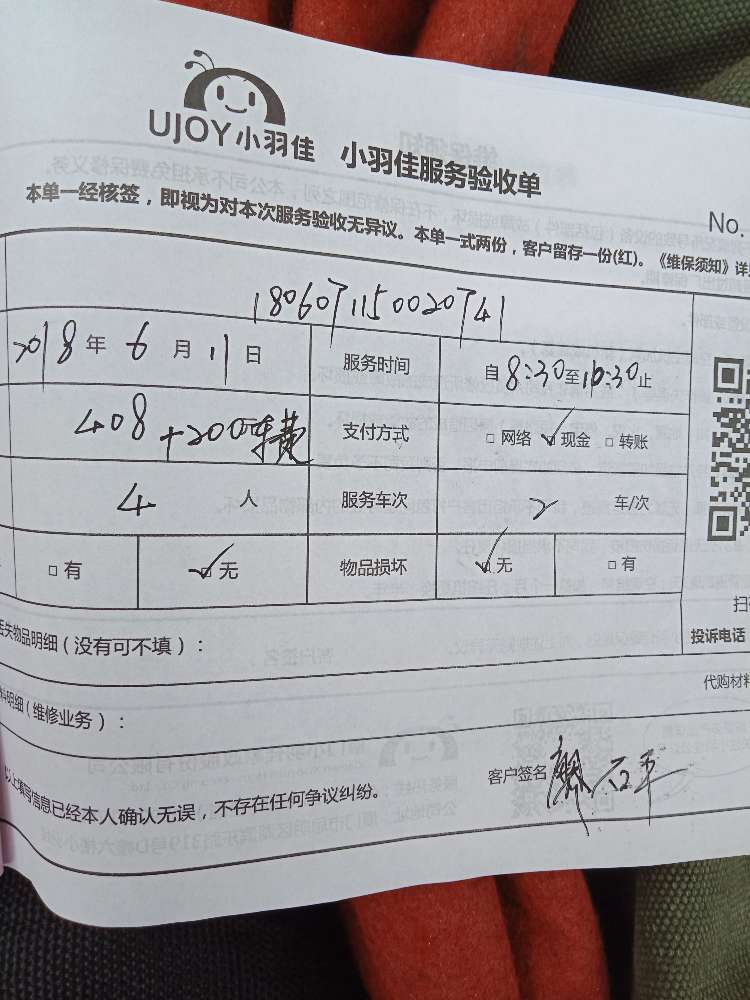 UJOY小羽佳 小羽佳服务验收单
No.
本单一经核签，即视为对本次服务验收无异议。本单一式两份，客户留存一份(红)。《维保须知》详
180607115002074
2018年6月11日 服务时间 自8:30至10:30止
408+200车费 支付方式 □网络 ☑现金 □转账
4人 服务车次 2车/次
□有 ☑无 物品损坏 ☑无 □有
扫
丢失物品明细（没有可不填）：
投诉电话
料明细（维修业务）：
代购材料
以上填写信息已经本人确认无误，不存在任何争议纠纷。
客户签名